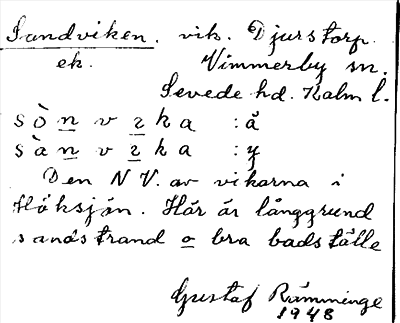 Sandviken. vik. Djurstorp.
ek. Vimmerby sn.
Sevede hd. Kalm l.
sònvɩka :å
sànvɩka :y
Den NV. av vikarna i
Höksjön. Här är långgrund
sandstrand o bra badställe
Gustaf Rämminge
1948